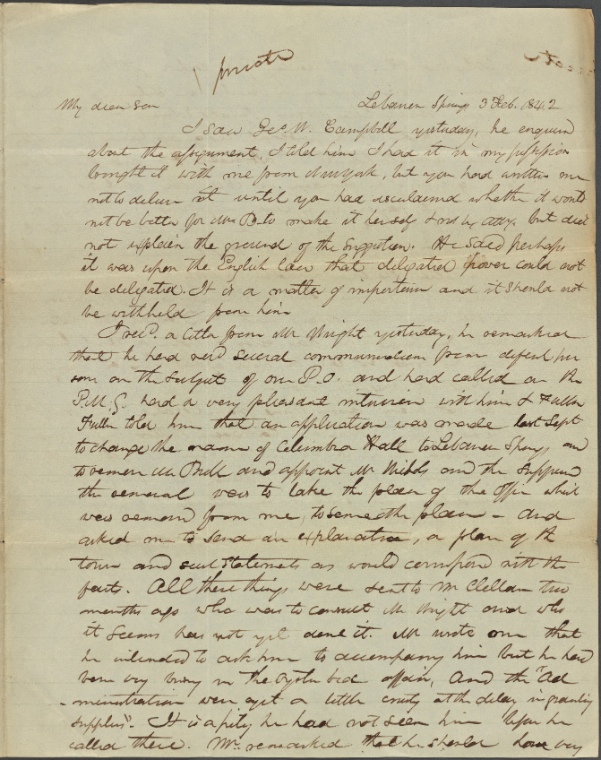 private
My dear Son Lebanon Spring 3 Feb. 1842
I saw Geo W. Campbell yesterday, he enquired
about the assignment, I told him I had it in my possession
brought it with me from New York, but you had written me
not to deliver it until you had ascertained whether it would
not be better for Mrs B. to make it herself & not by atty. but did
not explain the ground of the suggestion. He said perhaps
it was upon the English law that delegated power could not
be delegated. It is a matter of importance and it should not
be withheld from him
I recd. a letter from Mr Wright yesterday, he remarked
that he had recd several communications from different per
sons on the subject of our P.O. and had called on the
P.M.G. had a very pleasant interview with him & Fuller
Fuller told him that an application was made last Sept
to change the name of Columbia Hall to Lebanon Spring, and
to remove Mr Bull and appoint Mr Nibbs and he supposed
the removal was to take the place of the Office which
was removed from me, to some other place - and
asked me to send an explanation, a plan of the
town and such statements as would correspond with the
facts. All these things were sent to McClellan two
months ago who was to consult Mr Wright and who
it seems has not yet done it. He wrote me that
he intended to ask him to accompany him but he had
been very busy in the affair, and the "Ad
ministration were yet a little crusty at the delay in granting
supplies". It is a pity he had not seen him before he
called there. Mr. remarked that he should have very